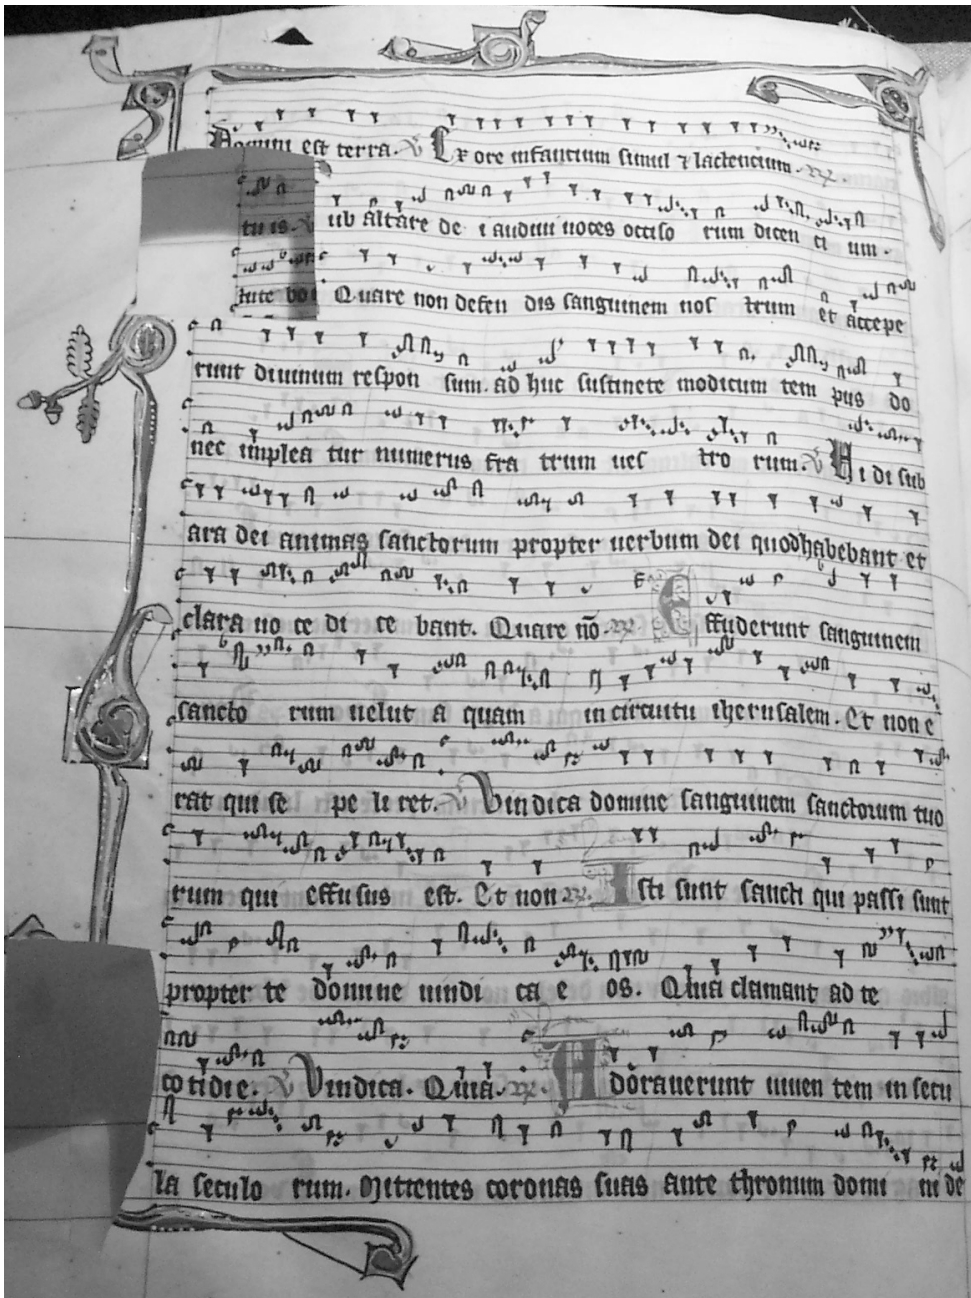 Domini est terra. Ex ore infantium simul ⁊ lactencium.
tu is. ub altare de i audiui uoces occiso rum dicen ti um.
Quare non defen dis sanguinem nos trum et accepe
runt diuinum respon sum. ad huc sustinete modicum tem pus do
nec implea tur numerus fra trum ues tro rum. Vi di sub
ara dei animas sanctorum propter uerbum dei quod habebant et
clara uo ce di ce bant. Quare nō. Effuderunt sanguinem
sancto rum uelut a quam in circuitu iherusalem. Et non e
rat qui se pe li ret. Vindica domine sanguinem sanctorum tuo
rum qui effusus est. Et non. Isti sunt sancti qui passi sunt
propter te domine uindi ca e os. Quia clamant ad te
cotidie. Vindica. Quia. Adorauerunt uiuen tem in secu
la seculo rum. Mittentes coronas suas ante thronum domi ni de